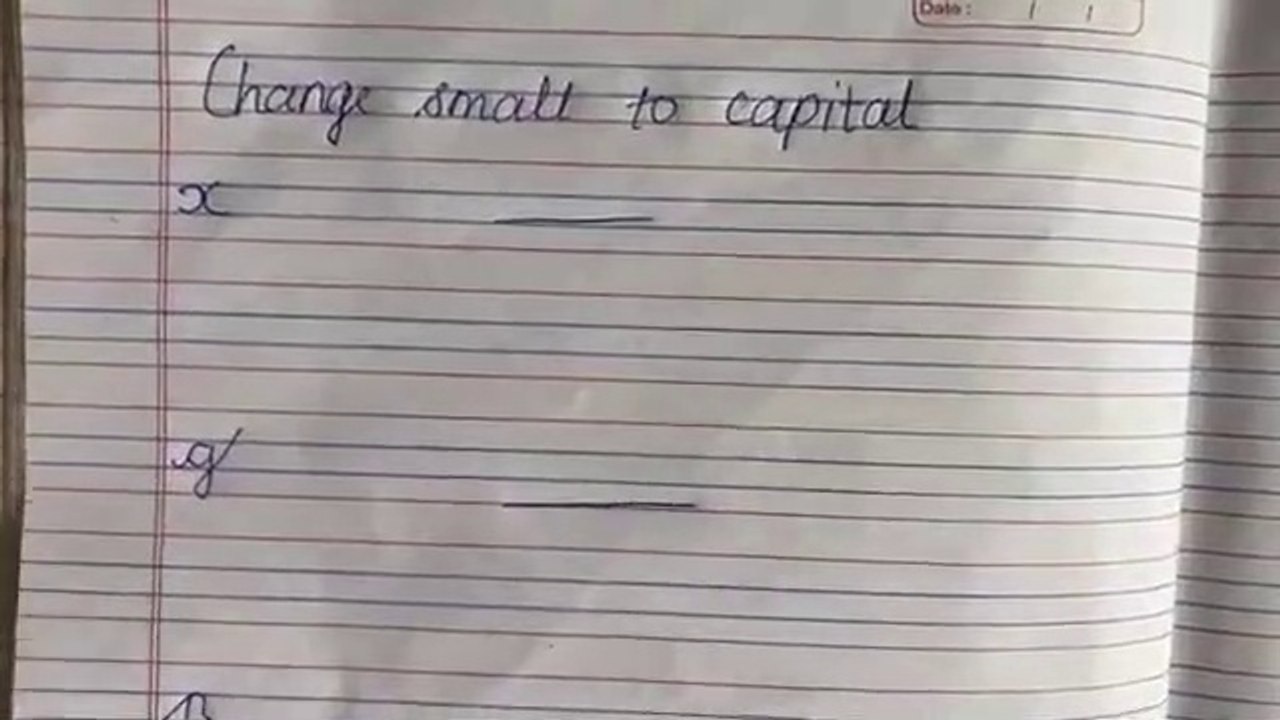 Date : / /
Change small to capital
x
g